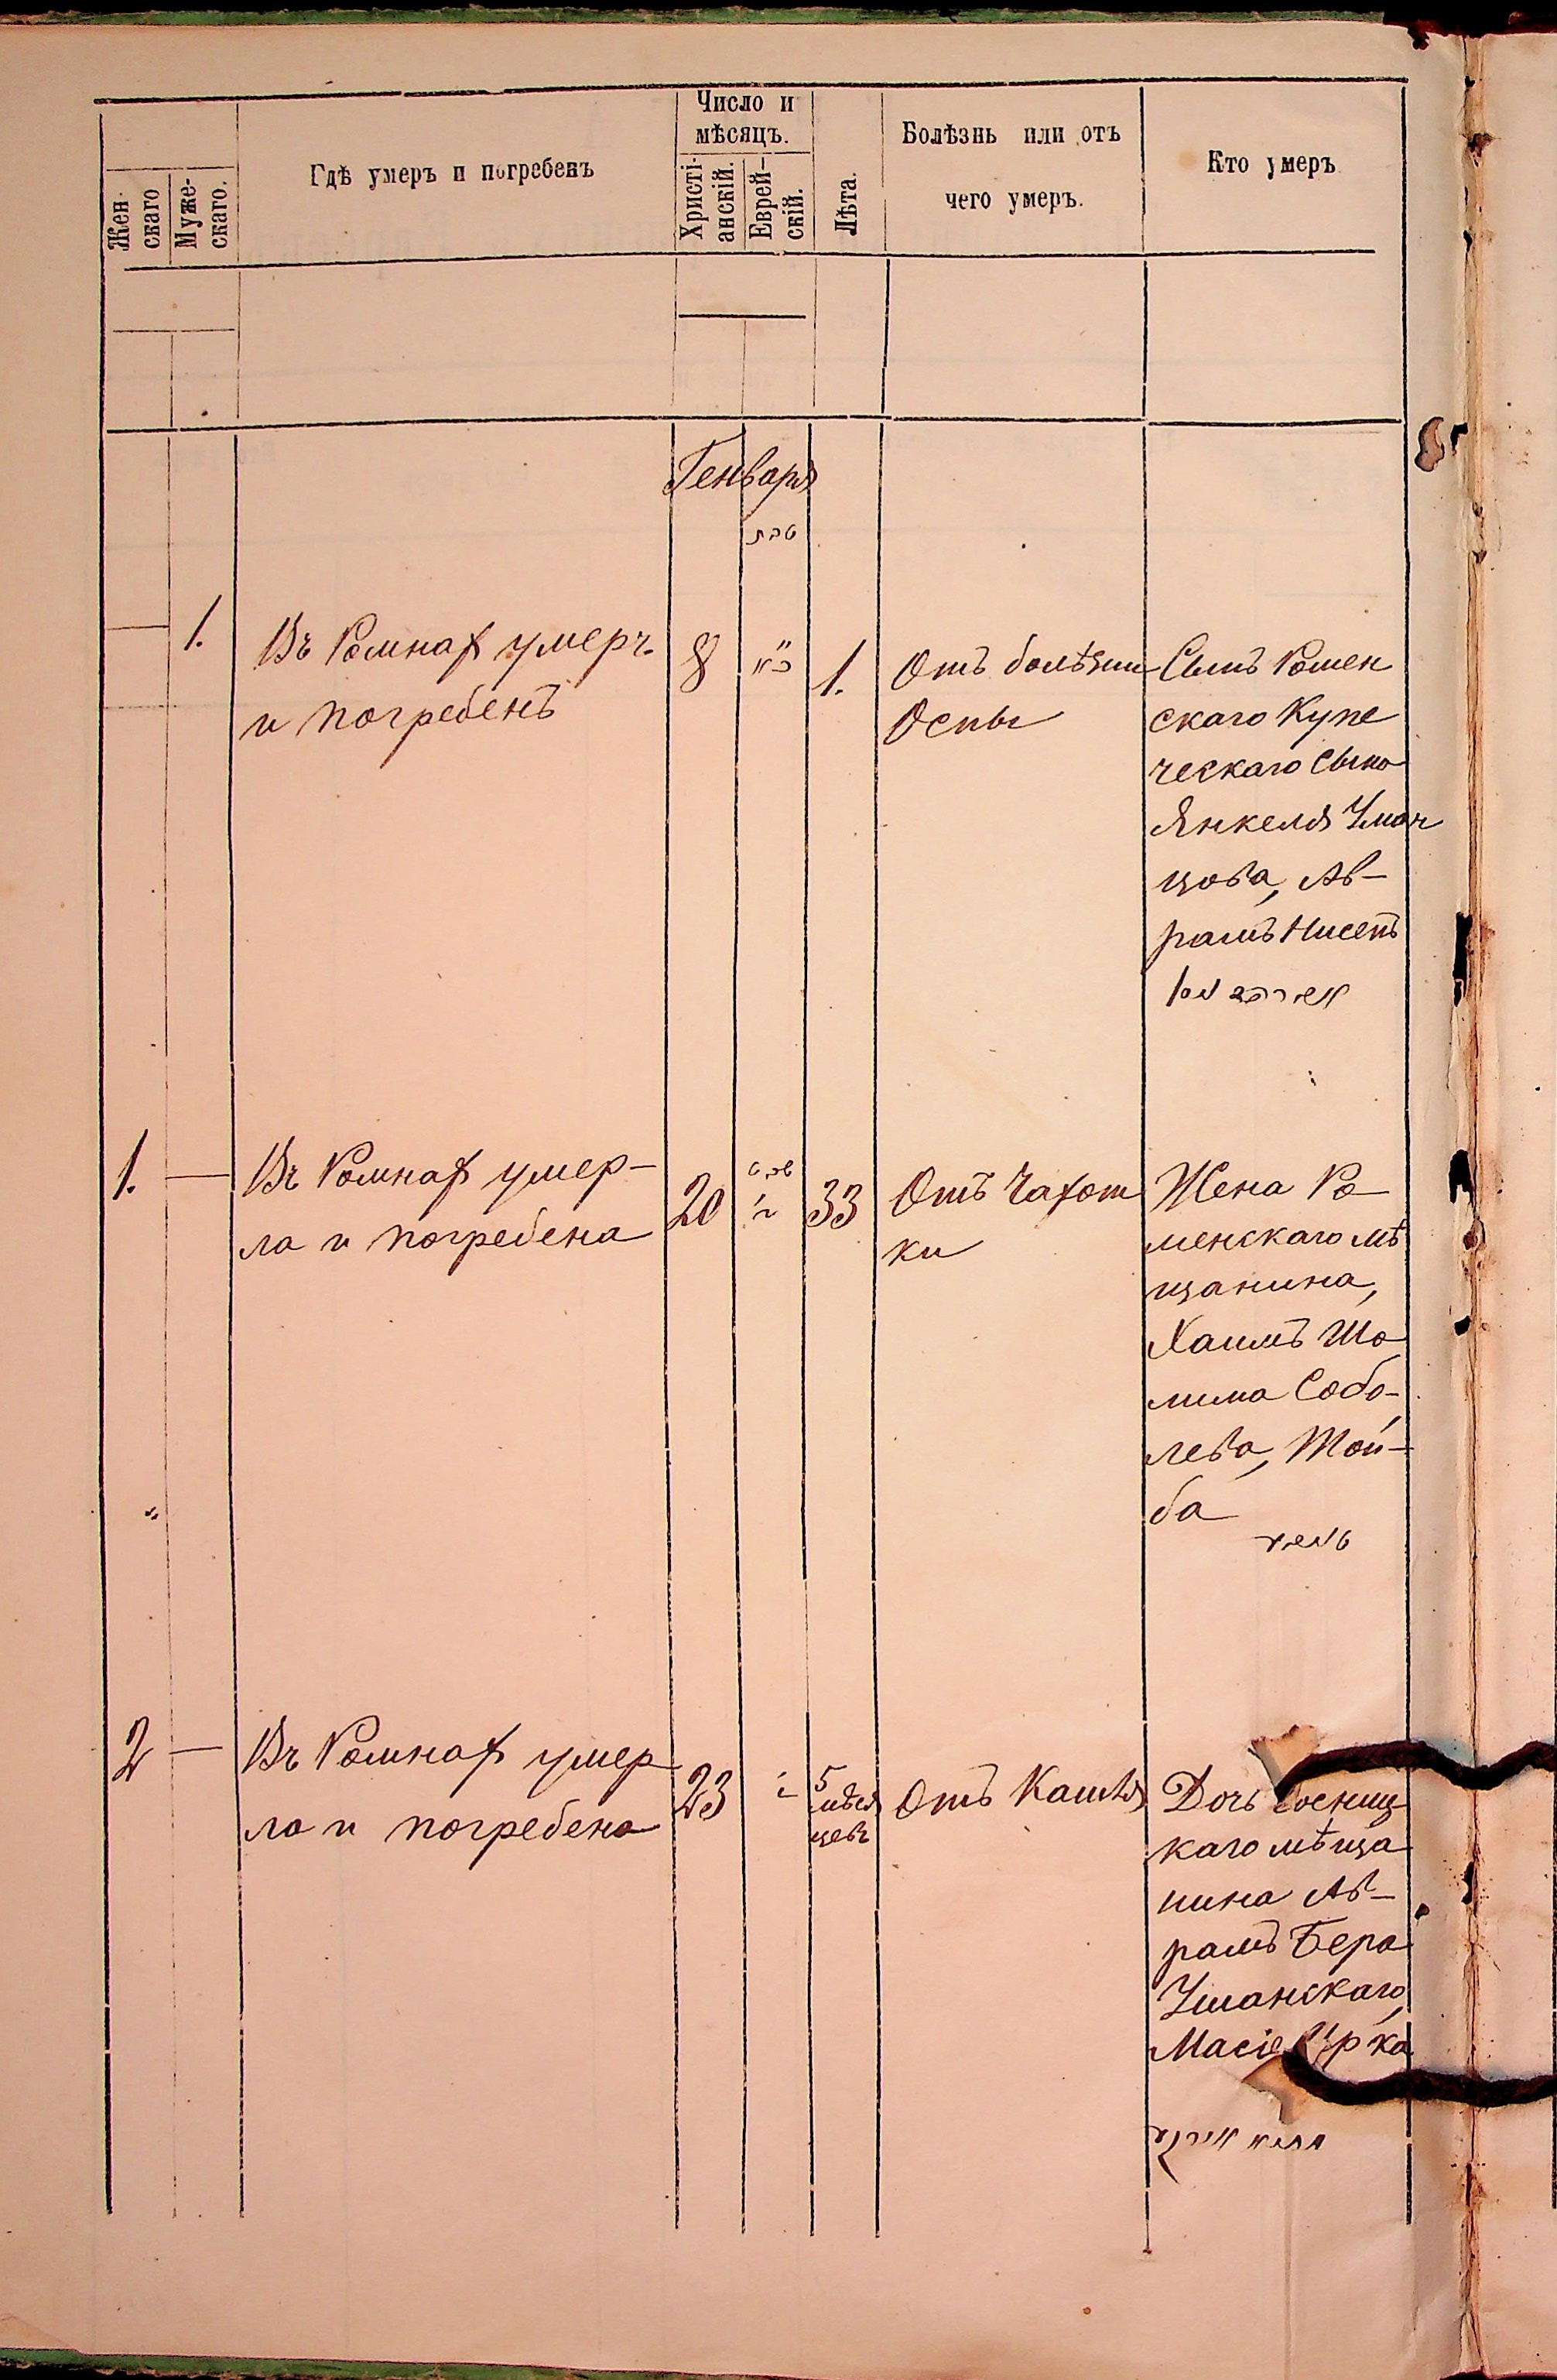 Жен-
скаго
Муже-
скаго.
Гдѣ умеръ и погребенъ
Число и
мѣсяцъ.
Христі-
анскій.
Еврей-
скій.
Лѣта.
Болѣзнь или отъ
чего умеръ.
Кто умеръ
Генваря
טבת
1.
Въ Ромнах умеръ
и погребенъ
8
1.
Отъ болѣзни
Оспы
Сынъ Ромен
скаго Купе
ческаго Сына
Янкеля Уман
цова, Ав-
рамъ Нисенъ
1.
—
Въ Ромнах умер-
ла и погребена
20
שבט
33
Отъ Чахот
ки
Жена Ро-
менскаго мѣ
щанина,
Хаимъ Шо
лима Собо-
лева, Той-
ба
טויבא
2
—
Въ Ромнах умер
ла и погребена
23
5
мѣся
цевъ
Отъ Кашля
Дочь Сосниц-
каго мѣща
нина Ав-
рамъ Бера
Уманскаго,